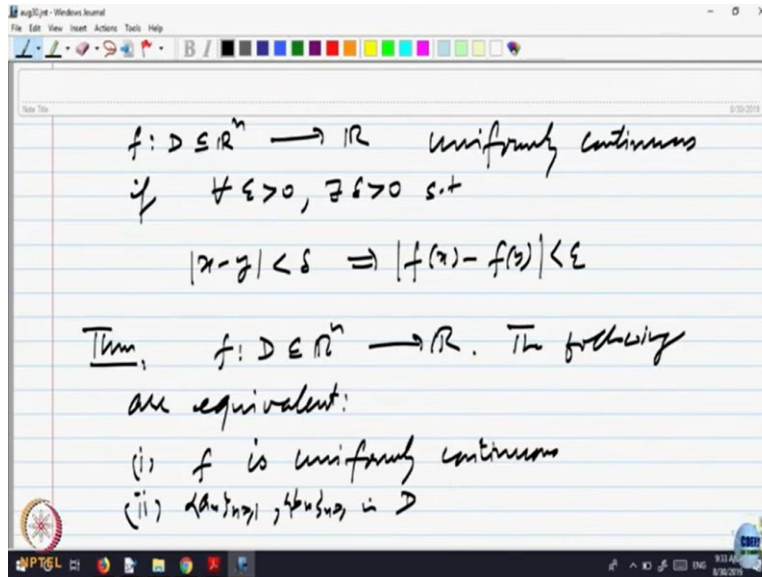 aug30.jnt - Windows Journal
File Edit View Insert Actions Tools Help
Note Title
8/30/2019
f : D ⊆ ℝⁿ ⟶ ℝ uniformly continuous
if ∀ ε>0, ∃ δ>0 s.t
|x-y| < δ ⇒ |f(x) - f(y)| < ε
Thm, f : D ⊆ ℝⁿ ⟶ ℝ. The following
are equivalent:
(i) f is uniformly continuous
(ii) {aₙ}ₙ≥₁, {bₙ}ₙ≥₁ in D
NPTEL
ENG
8/30/2019